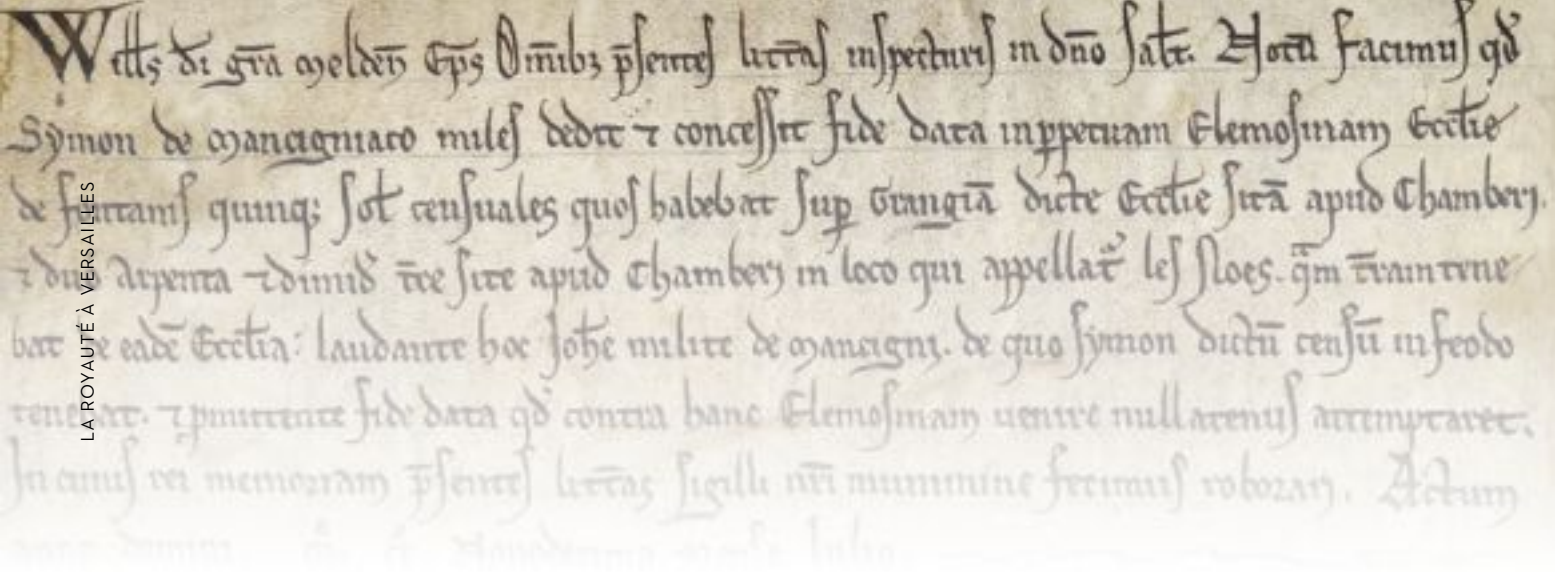 Wills di gra melden Eps Omib3 psentes litras inspecturis in dno salt. Notu facimus qd
Symon de mancigniaco miles dedit ⁊ concessit fide data inppetuam Elemosinam Ecctie
de quinq; sol censuales quos habebat sup Grangia dicte Ecctie sita apud Chambery.
⁊ duo arpenta ⁊ dimid tre site apud Chambery in loco qui appellat les Noes. qm tram tene
bat de eade Ecctia: laudante hoc Johe milite de mancigny. de quo symon dictu censu in feodo
tenebat. ⁊ pmittente fide data qd contra hanc Elemosinam uenire nullatenus attemptaret.
In cuius rei memoriam psentes litras sigilli nri munimine fecimus roborari. Actum
anno domini
LA ROYAUTÉ À VERSAILLES